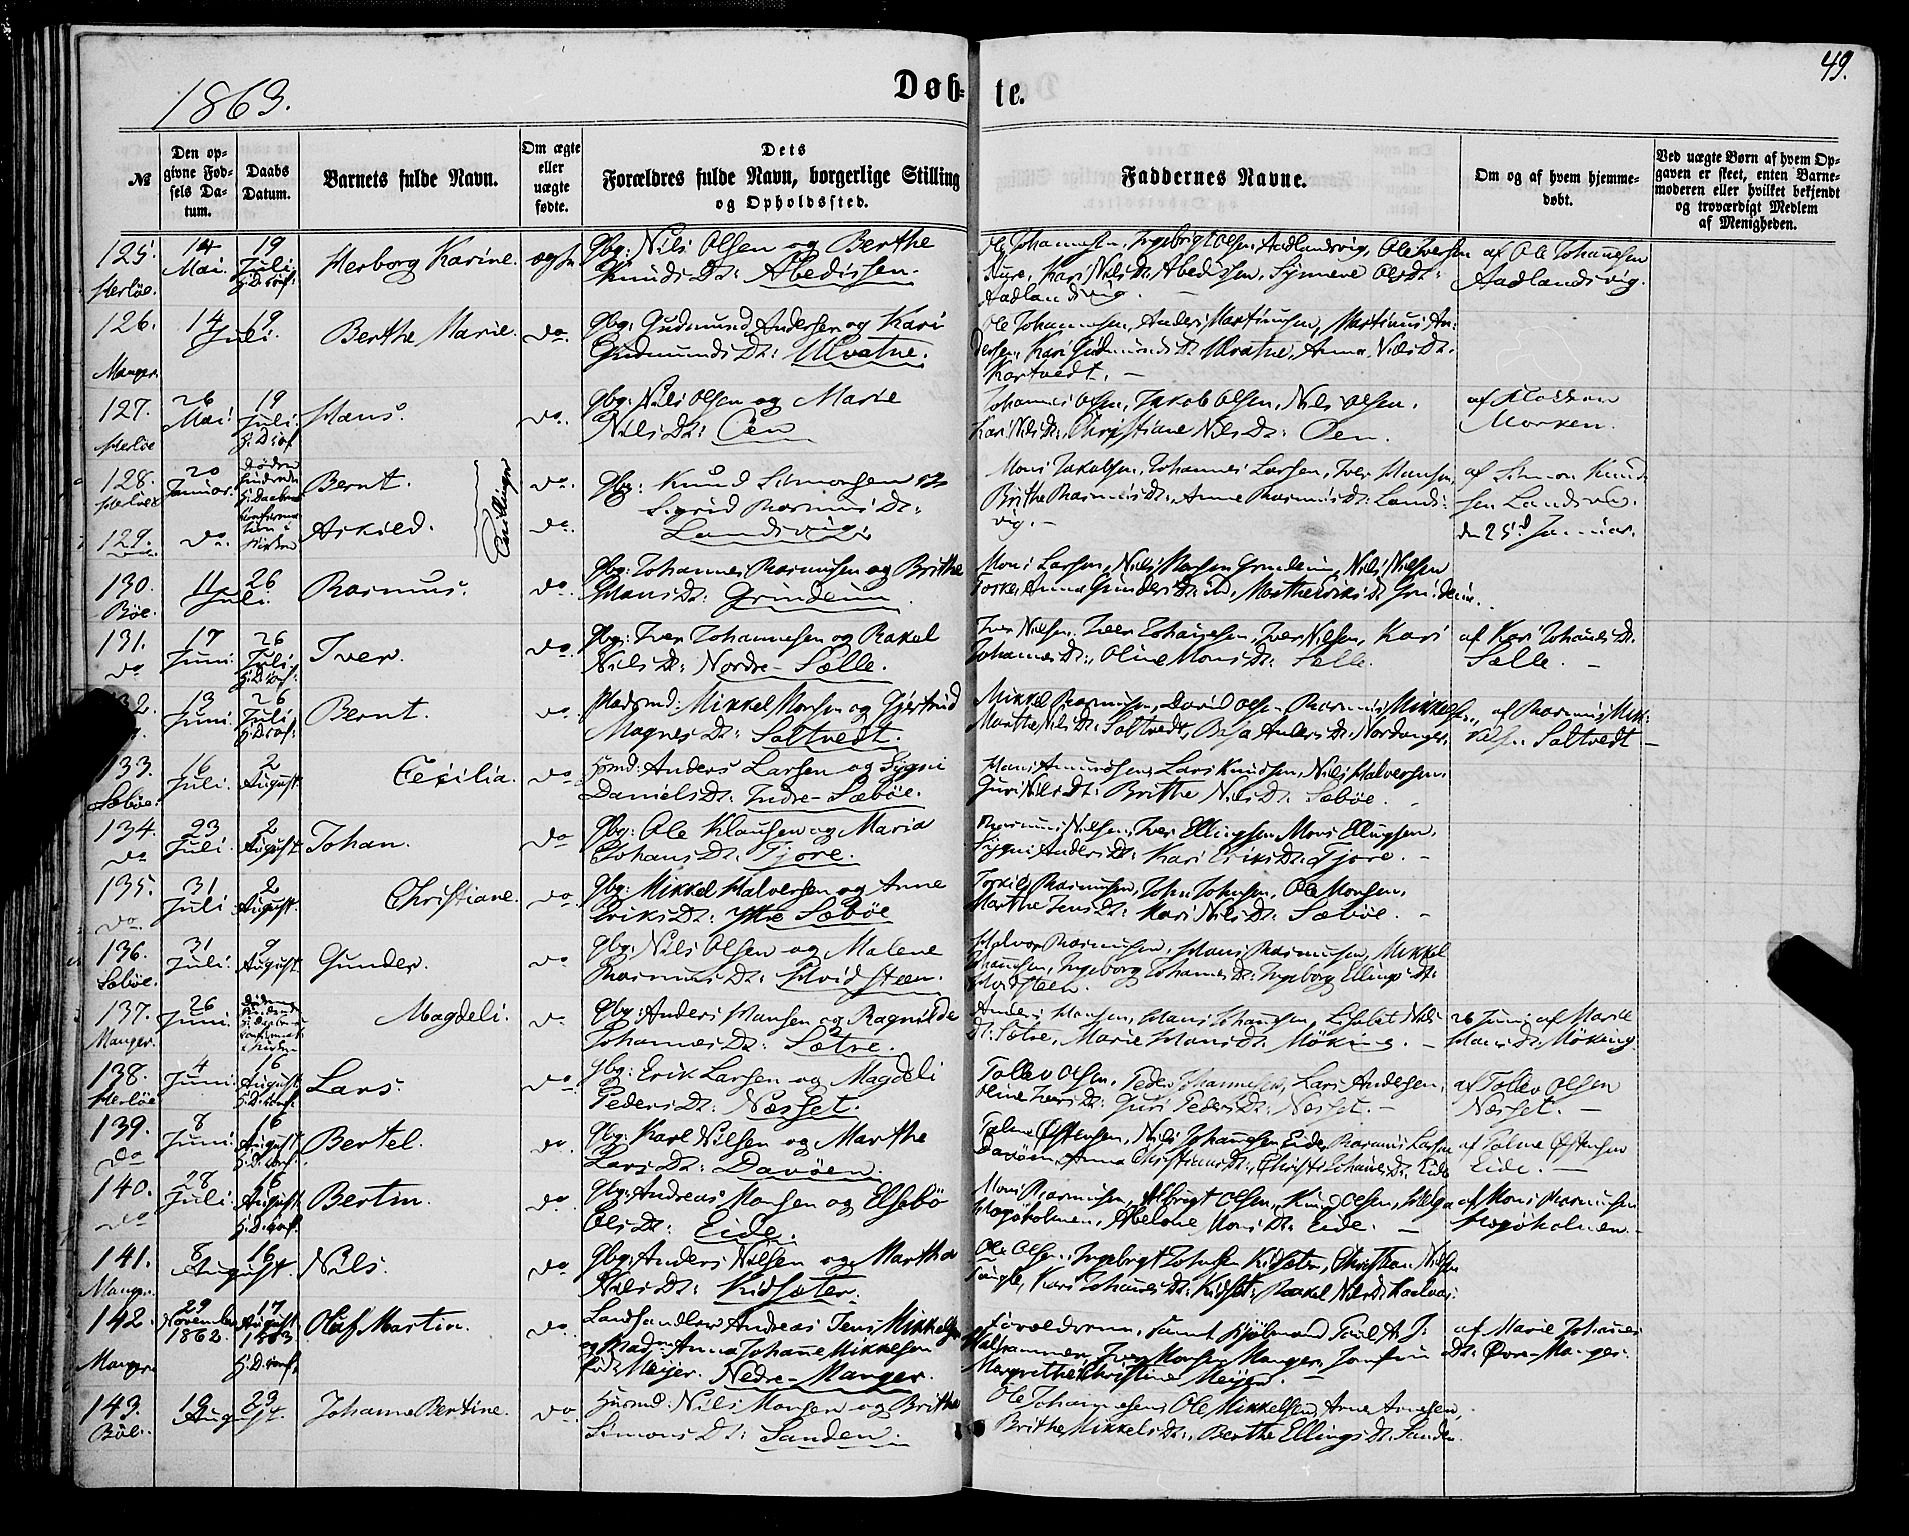 1863.
Døb-
te.
49.
№
Den opgivne Fødsels Datum.
Daabs Datum.
Barnets fulde Navn.
Om ægte eller uægte fødte.
Dets Forældres fulde Navn, borgerlige Stilling og Opholdssted.
Faddernes Navne.
Om og af hvem hjemmedøbt.
Ved uægte Børn af hvem Opgaven er skeet, enten Barnemoderen eller hvilket bekjendt og troværdigt Medlem af Menigheden.
125. Herløe. 14 Mai. 19 Juli. Herborg Karine.
Gbg: Nils Olsen og Berthe
Knuds Dt: Abedissen.
Ole Johannesen, Ingebrigt Olsen Aadlandsvig, Ole Iversen
Kari Nils Dt: Abedissen, Synneve Ols Dt:
Aadlandsvig.
af Ole Johannesen
Aadlandsvig.
126. Manger. 14 19 Juli. Berthe Marie. do.
Gbg: Gudmund Andersen og Kari
Gudmunds Dt: Ulvatne.
Ole Johannesen, Anders Martinusen, Martinus An-
dersen, Kari Gudmunds Dt: Ulvatne, Anna Nils Dt:
Kartvedt.
127. Herløe 26 Mai. 19 Juli. Hans. do.
Gbg: Nils Olsen og Marie
Nils Dt: Oen
Johannes Olsen, Jakob Olsen, Nils Olsen,
Kari Nils Dt: Christiane Nils Dt: Oen.
af
Morken.
128. Herløe 20 Januar. Bernt. do.
129. do. Askild. do.
Tvillinger
Gbg: Knud Simonsen og
Sigrid Rasmus Dt:
Landsvig.
Mons Jakobsen, Johannes Larsen, Iver Hansen,
Brithe Rasmus Dt: Anne Rasmus Dt: Lands-
vig.
af Simon Knud-
sen Landsvig
den 25d Januar.
130. Bøe. 11 26 Juli. Rasmus. do
Gbg: Johannes Rasmusen og Brithe
Hans Dt: Grindeim.
Mons Larsen, Nils Larsen Grindeim, Nils Nilsen
131. do 17 Juni. 26 Juli Iver. do.
Gbg: Iver Johannesen og Rakel
Nils Dt: Nordre-Sælle.
Iver Nilsen, Iver Johannesen, Iver Nilsen, Kari
Johannes Dt: Oline Mons Dt: Sælle.
af Kari Johannes Dt:
Sælle.
13 Juni. 26 Juli Bernt. do
Mikkel Monsen og Gjertrud
Magnes Dt: Saltvedt.
Mikkel Rasmusen, David Olsen, Rasmus Mikkelsen
Marthe Nils Dt: Saltvedt, Anders Dt: Nordanger.
af Rasmus Mik-
kelsen Saltvedt
133. Sæbøe. 16 Juli. 2 August. Cecilia. do
Huusmd: Anders Larsen og Sygni
Daniels Dt: Indre-Sæbøe.
Hans Amundsen, Lars Knudsen, Nils Halversen,
Guri Nils Dt: Brithe Nils Dt: Sæbøe.
134. do 23 Juli. 2 August Johan. do
Gbg: Ole Klausen og Maria
Johans Dt: Fjøre.
Rasmus Nilsen, Iver Ellingsen, Mons Ellingsen,
Sygni Anders Dt: Kari Eriks Dt: Fjøre.
135. do 31 Juli 2 August. Christiane. do
Gbg: Mikkel Halversen og Anne
Eriks Dt: Ytre Sæbøe
Torkild Rasmusen, John Johnsen, Ole Monsen,
Marthe Jens Dt: Kari Nils Dt: Sæbøe.
136. Sæbøe. 31 Juli. 9 August Gunder. do
Gbg: Nils Olsen og Malene
Rasmus Dt: Hvidsteen.
Halvor Rasmusen, Hans Rasmusen, Mikkel
Johannesen, Ingeborg Johannes Dt: Ingeborg Ellings Dt:
Hvidsteen.
137. Manger. 26 Juni. Magdeli. do
Gbg: Anders Hansen og Ragnilde
Johannes Dt: Sætre.
Anders Hansen, Hans Johannesen, Lisbet Nils
Dt: Sætre, Marie Hans Dt: Møking.
26 Juni af Marie
Hans Dt: Møking.
138. Herløe 4 Juni. 16 August Lars. do
Gbg: Erik Larsen og Magdeli
Peders Dt: Næsset.
Tollev Olsen, Peder Johannesen, Lars Andersen,
Oline Ivers Dt: Guri Peders Dt: Næsset.
af Tollev Olsen
Næsset.
139. do 8 Juni. 16 August Bertel. do
Gbg: Karl Nilsen og Marthe
Lars Dt: Davøen.
Nils Johannesen Eide, Rasmus Larsen
Davøen, Anna Christians Dt: Christi Johannes Dt: Eide
Eide.
140. do 28 Juli. 16 August Bertin. do
Gbg: Andreas Monsen og Elsebø
Ols Dt: Eide.
Mons Rasmusen, Albrigt Olsen, Knud Olsen,
Abelone Mons Dt: Eide.
af Mons Rasmusen
141. Manger. 8 16 August. Nils. do
Gbg: Anders Nilsen og Martha
Nils Dt: Kidsæter.
Ole Olsen, Ingebrigt Johnsen Kidsæter, Christian Nilsen
Kari Johannes Dt: Kidsæt: Rakel Nils Dt:
142. Manger. 29 November 1862. 17 August 1863 Oluf Martin. do
Landhandler Andreas Jens Mikkelsen
og Mad: Anna Johanne Mikkelsen
født Meyer. Nedre-Manger.
Forældrene, samt Paul A. J.
Iver Monsen Manger, Jomfru
Margrethe Christine Meyer.
af Marie Johannes
Dt: Øvre-Manger.
143. Bøe. 19 23 August. Johanne Bertine. do
Huusmd: Nils Monsen og Brithe
Simons Dt: Sanden.
Ole Johannesen, Ole Mikkelsen, Arne Arnesen,
Brithe Mikkels Dt: Berthe Ellings Dt: Sanden.